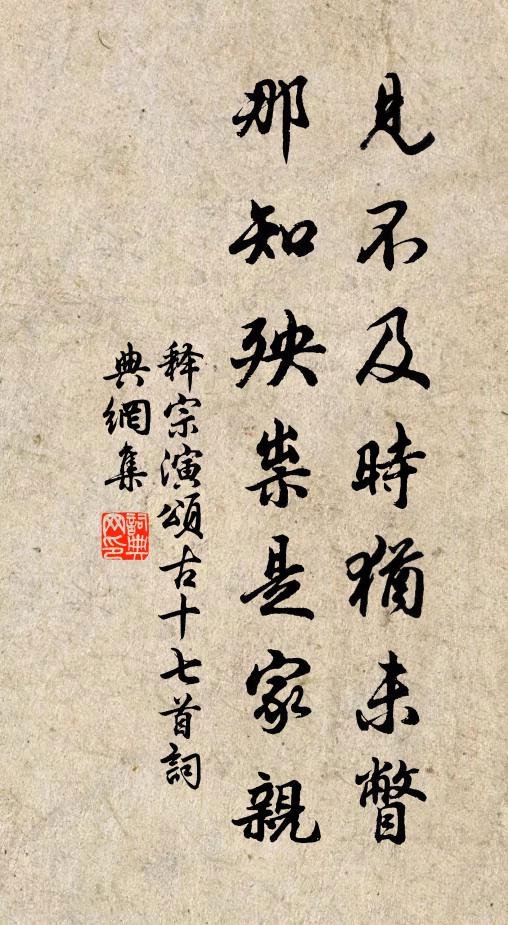 見不及時猶未瞥
那知殃祟是家親
释宗演頌古十七首詞
典網集
詞典网印